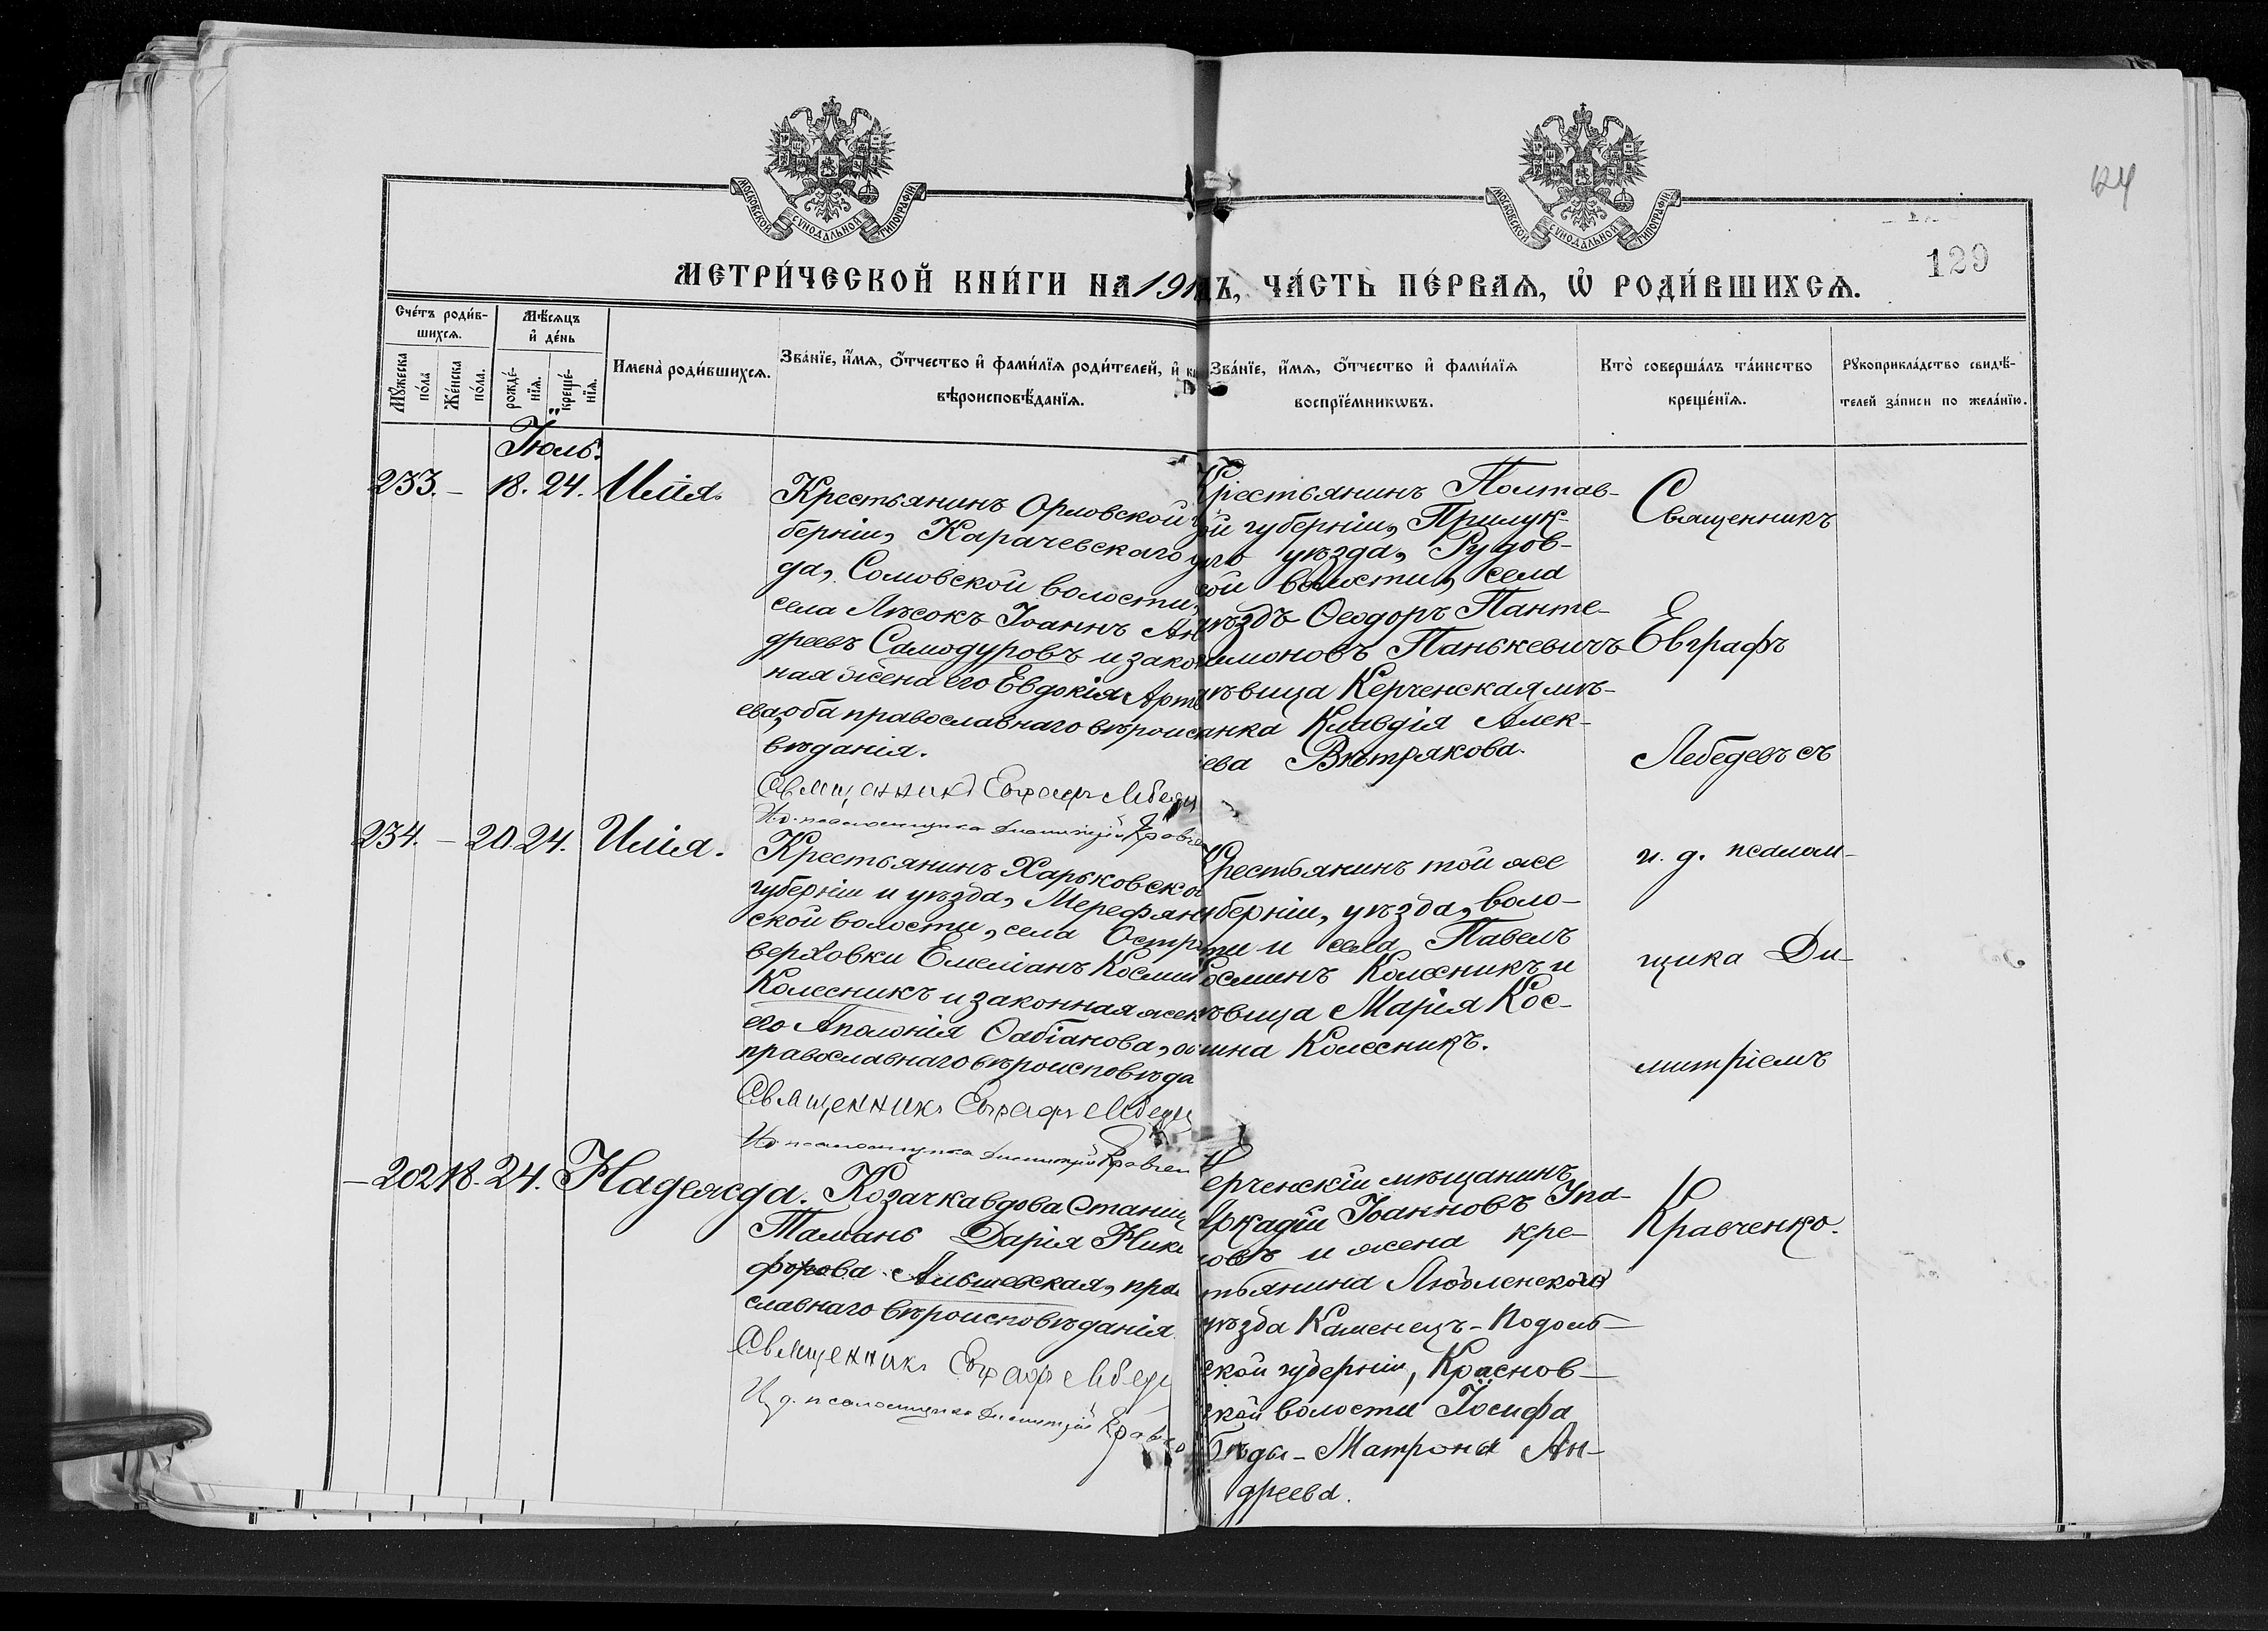 124
МОСКОВСКОЙ СУНОДАЛЬНОЙ ТИПОГРАФІИ
МОСКОВСКОЙ СУНОДАЛЬНОЙ ТИПОГРАФІИ
129
МЕТРИ́ЧЕСКОЙ КНИ́ГИ НА 191 ДЪ, ЧА́СТЬ ПЕ́РВАѦ, Ѡ РОДИ́ВШИХСѦ.
Сче́тъ роди́в-
шихсѧ.
Мѣ́сѧцъ
и҆ де́нь
Мꙋ́жеска
по́ла
Же́нска
по́ла.
рожде́-
нїѧ.
креще́-
нїѧ.
Имена̀ роди́вшихсѧ.
Зва́нїе, и҆́мѧ, ѻ҆́тчество и҆ фами́лїѧ роди́телей, и҆
вѣроисповѣ́данїѧ.
Зва́нїе, и҆́мѧ, ѻ҆́тчество и҆ фами́лїѧ
воспрїе́мникѡвъ.
Кто̀ соверша́лъ та́инство
креще́нїѧ.
Рꙋкоприкла́дство свидѣ́-
телей за́писи по жела́нїю.
Іюль.
233. – 18. 24. Илія.
Крестьянинъ Орловской
берніи, Карачевскаго у
да, Сомовской волости,
села Лѣсокъ Іоаннъ Ан
дреевъ Самодуровъ и закон
ная жена его Евдокія Арте
ева, оба православнаго вѣроис
вѣданія.
Священникъ Евграфъ Лебедев
И. д. псаломщика Димитрій Кравчен
Крестьянинъ Полтав-
ой губерніи, Прилук-
аго уѣзда, Рудов-
кой волости, села
уѣздъ Ѳеодоръ Панте-
лимоновъ Панькевичъ
дѣвица Керченская мѣ-
анка Клавдія Алек-
ѣева Вѣтрякова.
Священникъ
Евграфъ
Лебедевъ съ
и. д. псалом-
щика Ди-
митріемъ
Кравченко.
234. – 20. 24. Илія.
Крестьянинъ Харьковской
губерніи и уѣзда, Мерефян
ской волости, села Остро
верховки Емеліанъ Космин
Колесникъ и законная жен
его Аполонія Ѳабіанова, об
православнаго вѣроисповѣда
Священникъ Евграфъ Лебедев
И. д. псаломщика Димитрій Кравчен
Крестьянинъ той же
уберніи, уѣзда, воло-
сти и села Павелъ
Косминъ Колесникъ и
дѣвица Марія Кос-
мина Колесникъ.
– 202 18. 24. Надежда.
Козачка вдова Стани
Тамань Дарія Ники
форова Альшевская, пра
славнаго вѣроисповѣданія.
Священникъ Евграфъ Лебеде
И. д. псаломщика Димитрій Кравч
Керченскій мѣщанинъ
Аркадій Іоанновъ Упа-
овъ и жена кре-
стьянина
уѣзда Каменецъ-Подоль-
ской губерніи, Краснов-
ской волости Іосифа
Бѣды – Матрона Ан-
дреева.